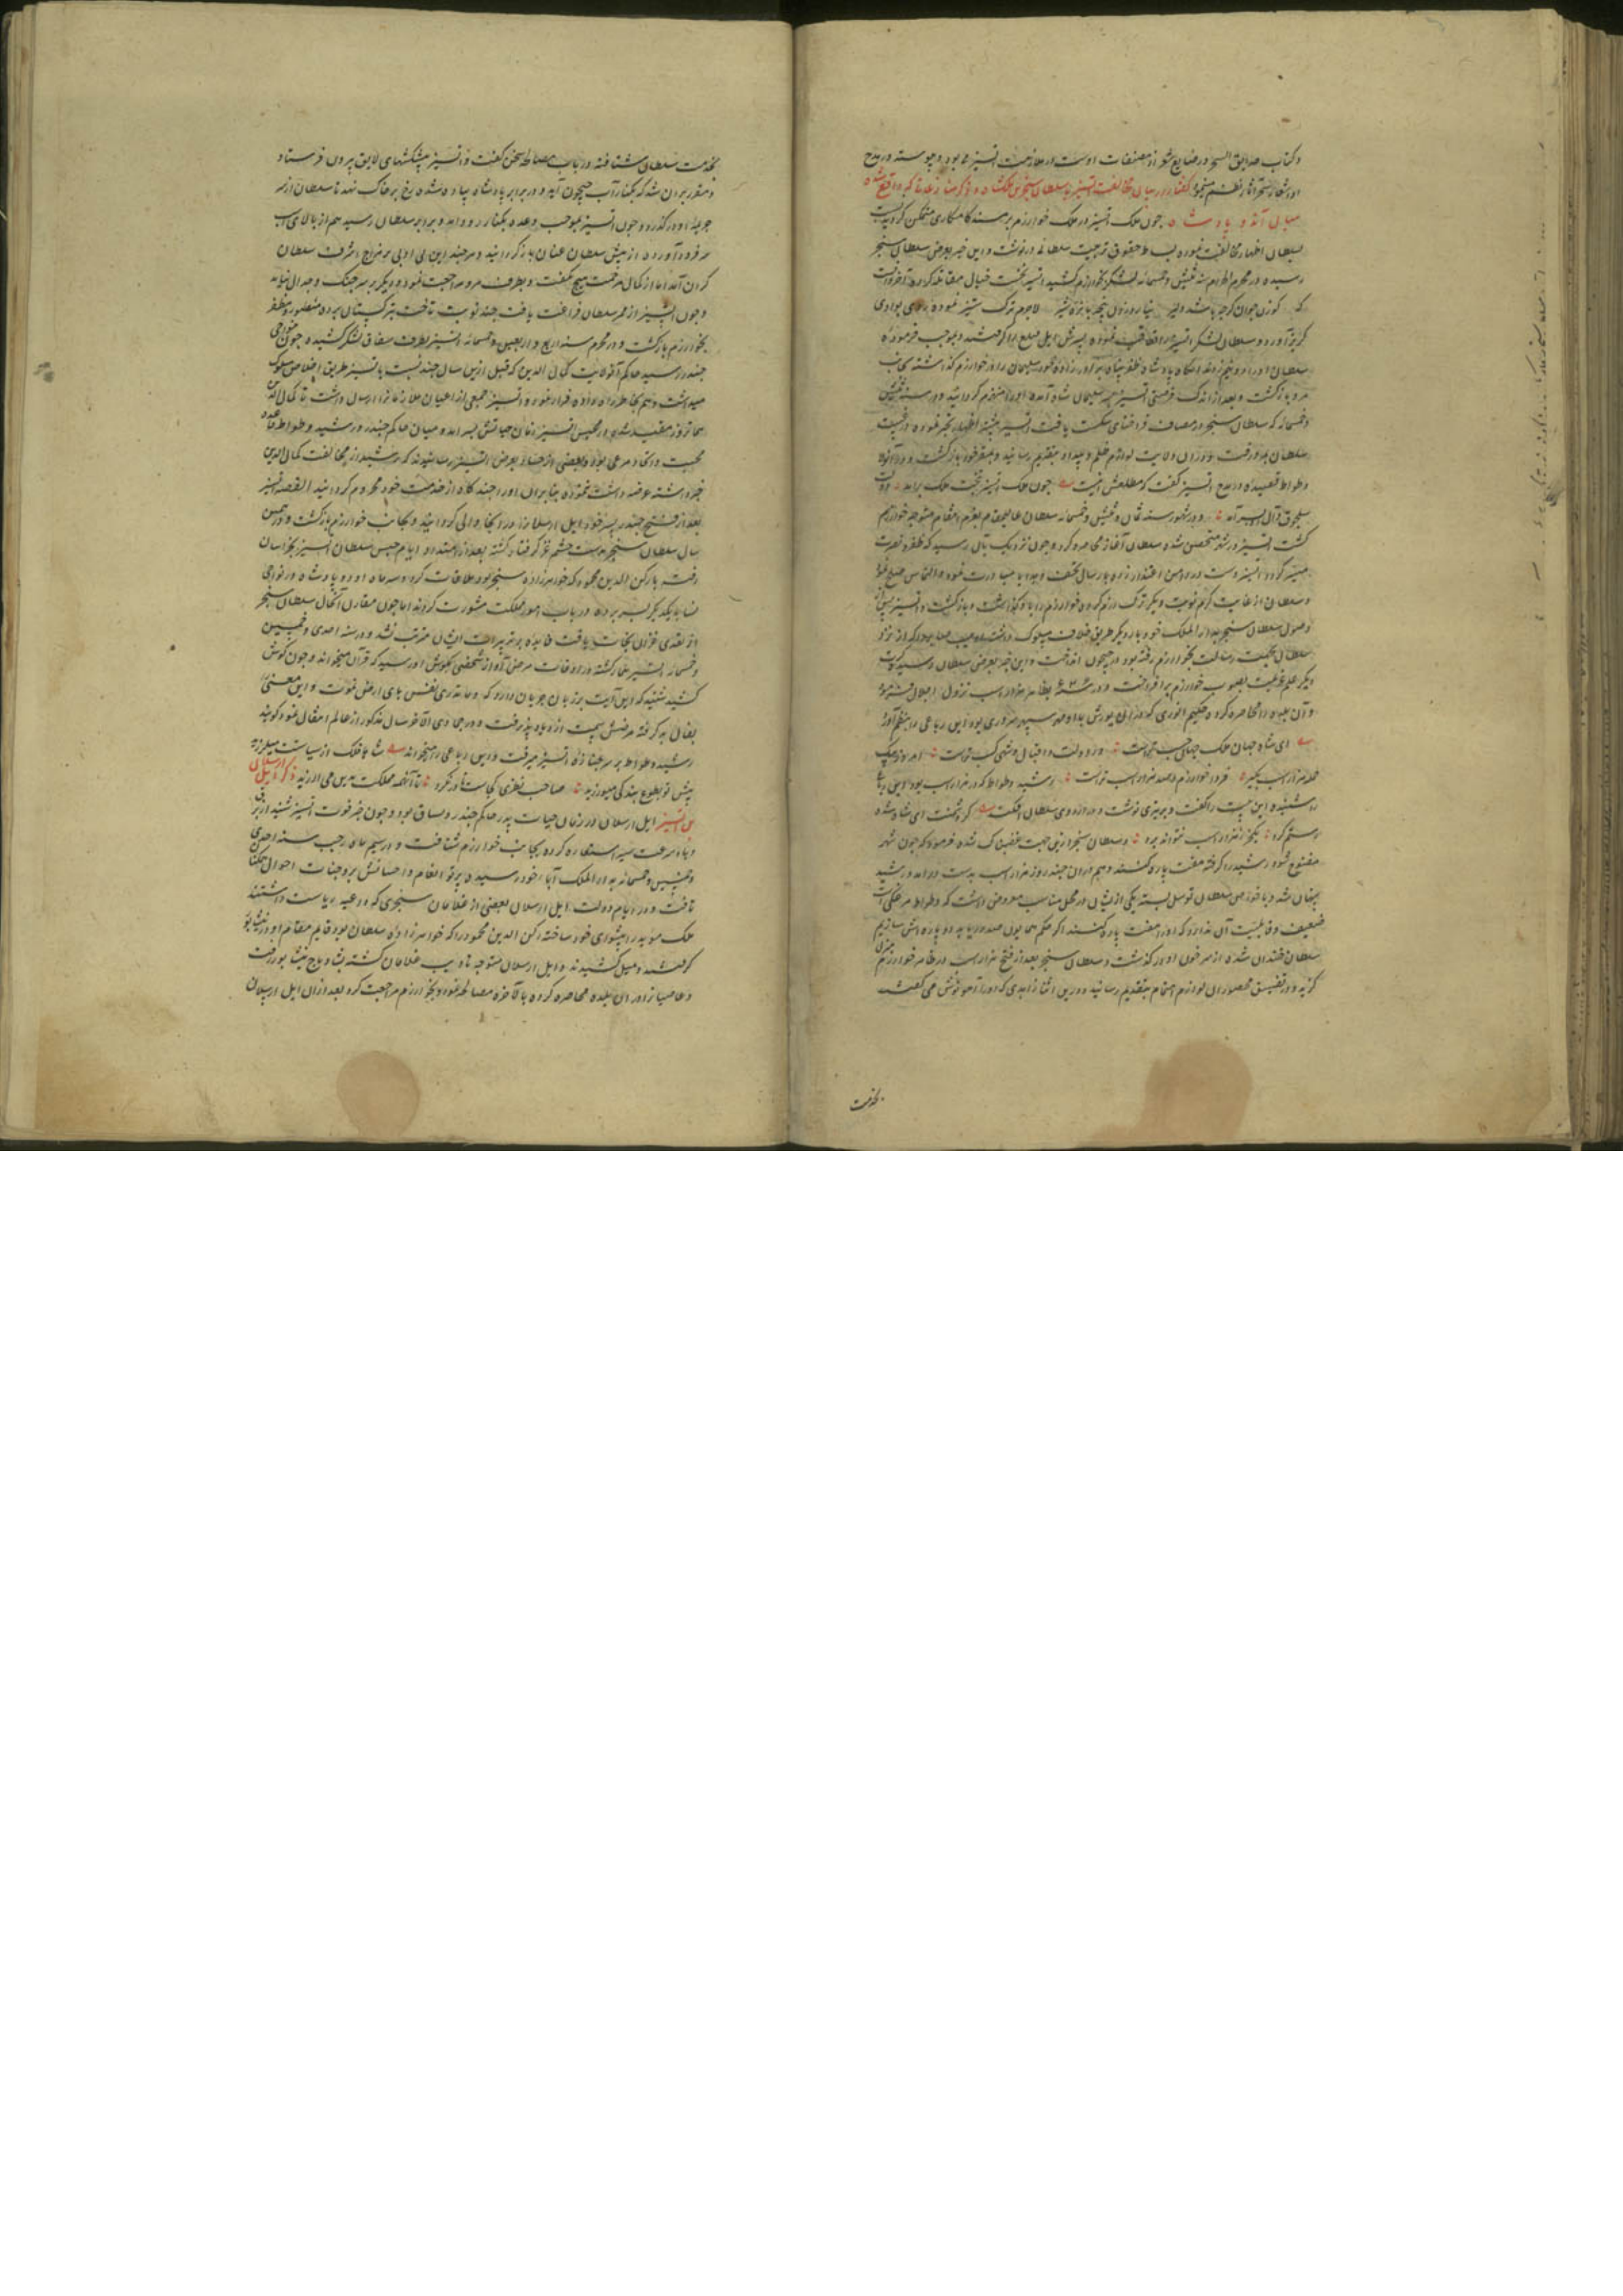 وکتاب حدایق السحر در صنایع شعر از مصنفات اوست در ملازمت اتسز می بود و پیوسته در مدح
او اشعار سحر آثار نظم مینمود گفتار در بیان مخالفت اتسز با سلطان سنجر بن ملکشاه و ذکر منازعات که واقع شده
میان آن دو پادشاه چون ملک اتسز در ملک خوارزم بر مسند کامکاری متمکن گردید
بسلطان اظهار مخالفت نموده بساط حقوق تربیت سلطانی درنوشت و این خبر بعرض سلطان سنجر
رسیده در محرم الحرام سنه وخمسمائه لشکر بخوارزم کشید اتسز نخست خیال مقاتله کرده آخر دانست
که گوزن جوان گرچه باشد دلیر نیارد زدن پنجه با نره شیر لاجرم ترک ستیز نموده روی بوادی
گریز آورد و سلطان لشکر اتسز را تعاقب نموده پسرش ایل قتلغ را گرفتند و بموجب فرموده
سلطان او را دو نیم زدند آنگاه پادشاه ظفر پناه برادرزاده خود سلیمان را در خوارزم گذاشته بجانب
مرو بازگشت و بعد از اندک فرصتی اتسز بر سر سلیمان شاه آمده او را منهزم گردانید و در سنه
وخمسمائه که سلطان سنجر در مصاف قراختای شکست یافت اتسز بیشتر اظهار تجبر نموده در غیبت
سلطان بمرو رفت و در آن ولایت لوازم ظلم و بیداد بتقدیم رسانید و بمقر خود بازگشت و در آنولا
وطواط قصیده در مدح اتسز گفت که مطلعش اینست چون ملک اتسز بتخت ملک برآمد دولت
سلجوق و آل او بسر آمد و در شهور سنه ثمان و ثلثین وخمسمائه سلطان عالیمقام بعزم انتقام متوجه خوارزم
گشت اتسز در شهر متحصن شده سلطان آغاز محاصره کرد و چون نزدیک بآن رسید که ظفر و نصرت
میسر گردد اتسز دست در دامن اعتذار زده بارسال تحف و هدایا مبادرت نمود و التماس صلح نمود
وسلطان از غایت کرم نوبت دیگر ترک رزم کرده خوارزم را باو گذاشت و بازگشت و اتسز پس از
وصول سلطان سنجر بدار الملک خود بار دیگر طریق خلاف مسلوک داشته ادیب صابر را که از نزد
سلطان بجهت رسالت بخوارزم رفته بود در جیحون انداخت و این خبر بعرض سلطان رسید کرت
دیگر علم عزیمت بصوب خوارزم برافروخت و در بظاهر هزار اسب نزول اجلال فرمود
و آن بلده را محاصره کرد و حکیم انوری که در آن یورش بود این رباعی را بنظم آورد
ای شاه جهان ملک جهان حسب تراست وز دولت و اقبال شهی کسب تراست امروز بیک
حمله هزار اسب بگیر فردا خوارزم و صد هزار اسب تراست رشید وطواط که در هزار اسب بود این رباعی
را شنیده این بیت را گفت و بر تیری نوشت و در اردوی سلطان افکند گر خصمت ای شاه شود
رستم گرد یک خر ز هزار اسب نتواند برد وسلطان سنجر ازین جهت غضبناک شده فرمود که چون شهر
مفتوح شود رشید را گرفته هفت پاره کنند و هم در آن چند روز هزار اسب بدست درآمد و رشید
پنهان شد و با خواص سلطان توسل بسته یکی از ایشان در محل مناسب معروض داشت که وطواط مرغکی است
ضعیف و قابلیت آن ندارد که او را هفت پاره کنند اگر حکم همایون صدور یابد او را دو پاره سازیم
سلطان خندان شده از سر خون او درگذشت و سلطان سنجر بعد از فتح هزار اسب در ظاهر خوارزم منزل
گزید و در تضییق محصوران لوازم اهتمام بتقدیم رسانید و درین اثنا زاهدی که او را آهو پوش می گفتند
بخدمت
بخدمت سلطان شتافته در باب مصالحه سخن گفت و اتسز پیشکشهای لایق بیرون فرستاد
و مقرر بر آن شد که بکنار آب جیحون آید و در برابر پادشاه پیاده شده رخ بر خاک نهد تا سلطان از سر
جریمه او درگذرد و چون اتسز بموجب وعده بکنار رود آمد و برابر سلطان رسید هم از بالای اسب
سر فرود آورده از پیش سلطان عنان بازگردانید و هرچند این بی ادبی بر مزاج اشرف سلطان
گران آمد اما از کمال مرحمت هیچ نگفت و بطرف مرو مراجعت نمود و دیگر بر سر جنگ و جدال نیامد
و چون اتسز از ممر سلطان فراغت یافت چند نوبت تاخت بترکستان برده منصور و مظفر
بخوارزم بازگشت و در محرم سنه اربع و اربعین وخمسمائه اتسز بطرف سقناق لشکر کشیده چون بنواحی
جند رسید حاکم آن ولایت کمال الدین که قبل ازین سال چند نسبت با اتسز طریق اخلاص مسلوک
میداشت وهم بخاطر راه داده فرار نمود و اتسز جمعی از اعیان ملازمان را ارسال داشت تا کمال الدین
همان روز مقید شده در محبس اتسز زمان حیاتش بسر آمد و میان حاکم جند و رشید وطواط قاعده
محبت و اتحاد مرعی بود و بعضی از حساد بعرض اتسز رسانیدند که رشید از مخالفت کمال الدین
خبر داشته عرضه داشت ننموده بنابران او را چندگاه از خدمت خود محروم گردانید القصه اتسز
بعد از فتح جند پسر خود ایل ارسلان را در آنجا والی گردانید و بجانب خوارزم بازگشت و در همین
سال سلطان سنجر بدست حشم غز گرفتار گشته بعد از امتداد ایام حبس سلطان اتسز بخراسان
رفته با رکن الدین محمود که خواهرزاده سنجر بود ملاقات کرد و سه ماه آن دو پادشاه در نواحی
نسا با یکدیگر بسر برده در باب امور مملکت مشورت کردند اما چون مقارن آنحال سلطان سنجر
از تعدی غزان نجات یافت فایده بر تدبیرات ایشان مترتب نشد و در سنه احدی و خمسین
وخمسمائه اتسز بیمار گشته در اوقات مرض آواز شخصی بگوش او رسید که قرآن میخواند و چون گوش
کشید شنید که این آیت بر زبان جریان دارد که وما تدری نفس بای ارض تموت و این معنی را
بفال بد گرفته مرضش سمت ازدیاد پذیرفت و در جمادی الآخر سال مذکور از عالم انتقال نمود گویند
رشید وطواط بر سر جنازه اتسز میرفت و این رباعی را میخواند شاها فلک از سیاستت میلرزید
پیش تو بطوع بندگی میورزید صاحب نظری کجاست تا درنگرد تا آنهمه مملکت بدین می ارزید ذکر ایل ارسلان
بن اتسز ایل ارسلان در زمان حیات پدر حاکم جند و بود و چون خبر فوت اتسز شنید از برق
و باد سرعت سیر استعاره کرده بجانب خوارزم شتافت و در سیم ماه رجب سنه احدی
وخمسین وخمسمائه بدار الملک آبا خود رسیده پرتو انعام و احسانش بر وجنات احوال همگنان
تافت و در ایام دولت ایل ارسلان بعضی از غلامان سنجری که داعیه ریاست داشتند
ملک موید را پیشوای خود ساخته رکن الدین محمود را که خواهرزاده سلطان بود و قایم مقام او در نیشابور
گرفتند و میل کشیدند و ایل ارسلان متوجه تادیب غلامان گشته بشادیاخ نیشابور رفت
و عاصیان را در آن بلده محاصره کرده بالاخره مصالحه نمود و بخوارزم مراجعت کرد بعد از آن ایل ارسلان